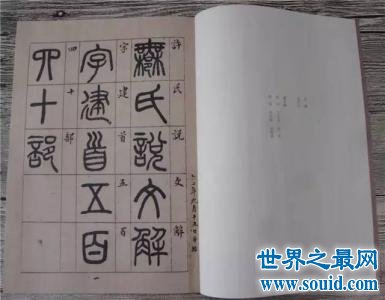 許氏說文解
鄦氏說文解
字建首五百
字建首五百
四十部
四十部
一
世界之最网
www.souid.com